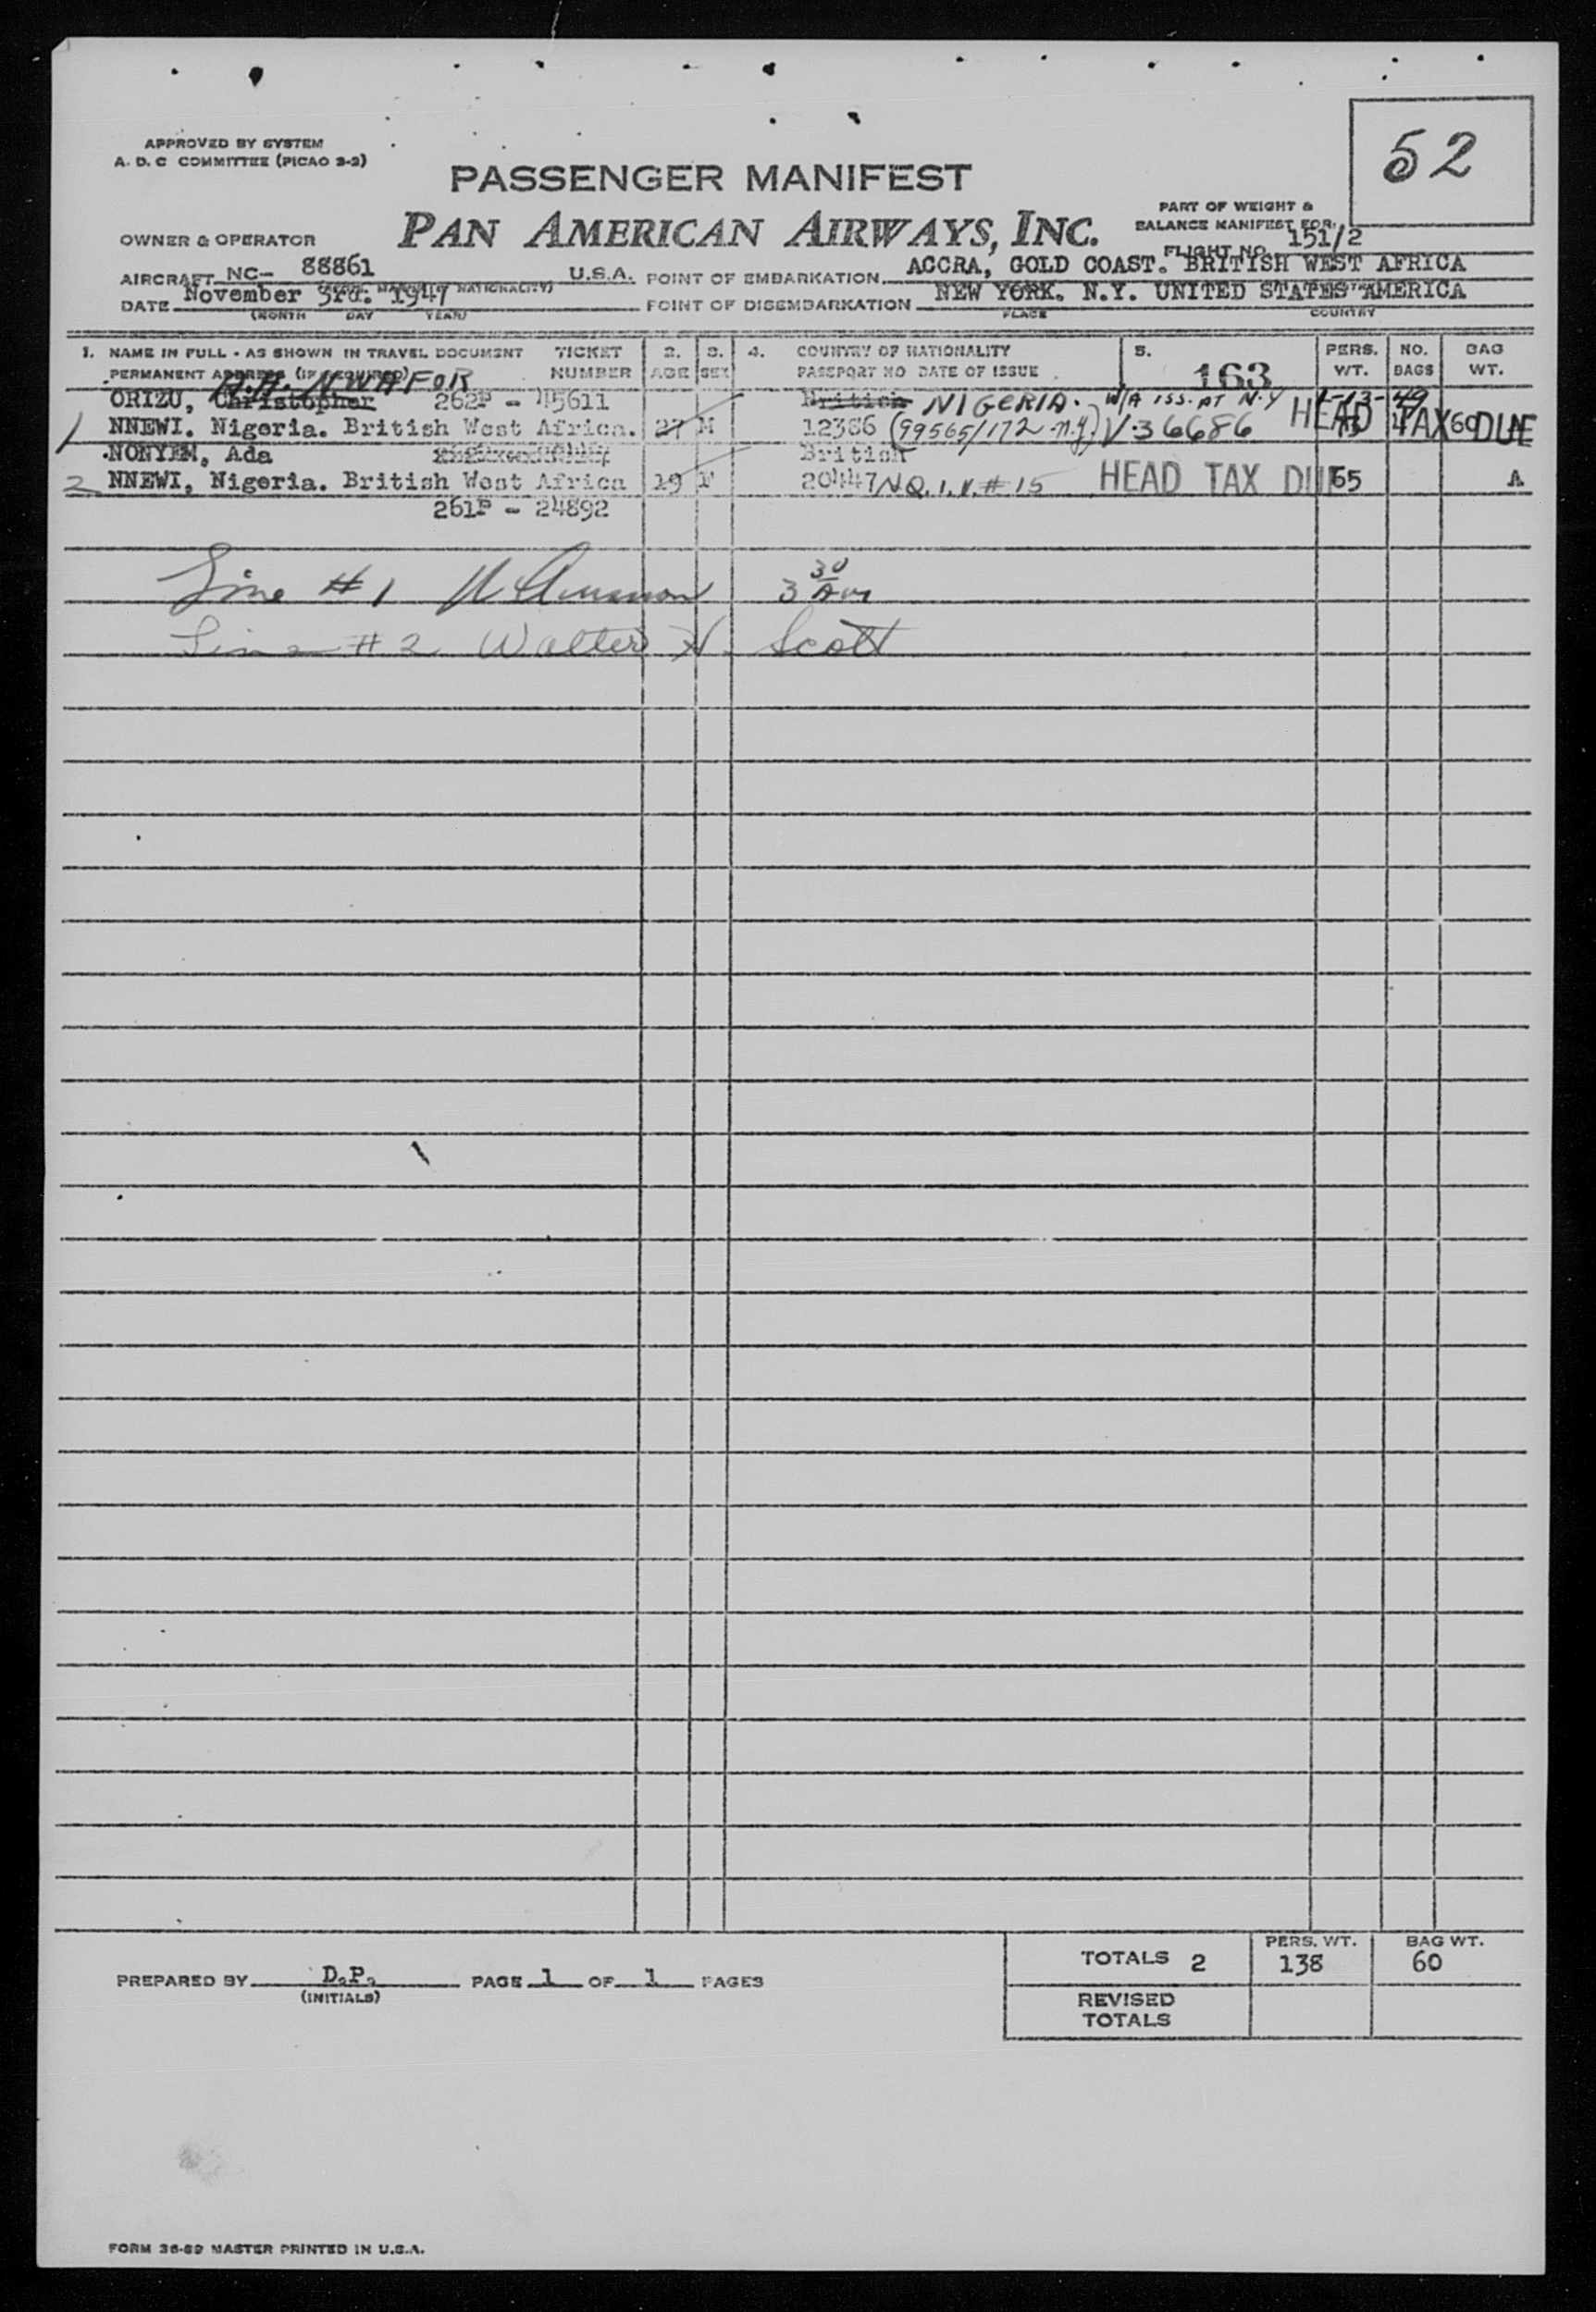 52
APPROVED BY SYSTEM
A. D. C COMMITTEE (PICAO 2-2)
PASSENGER MANIFEST
PAN AMERICAN AIRWAYS, INC.
PART OF WEIGHT &
BALANCE MANIFEST FOR
FLIGHT NO. 151/2
OWNER & OPERATOR
AIRCRAFT NC- 88861 U.S.A. POINT OF EMBARKATION ACCRA, GOLD COAST. BRITISH WEST AFRICA
DATE November 3rd. 1947 POINT OF DISEMBARKATION NEW YORK. N.Y. UNITED STATES AMERICA
(MONTH DAY YEAR) PLACE COUNTRY
1. NAME IN FULL - AS SHOWN IN TRAVEL DOCUMENT TICKET 2. 3. 4. COUNTRY OF NATIONALITY 5. PERS. NO. BAG
PERMANENT ADDRESS (IF REQUIRED) NUMBER AGE SEX PASSPORT NO DATE OF ISSUE 163 WT. BAGS WT.
A.A. NWAFOR
ORIZU, Christopher 262P - 45611 British NIGERIA. W/A ISS. AT N.Y 1-13-49
1 NNEWI. Nigeria. British West Africa. 27 M 12386 (99565/172 N.Y.) V.36686 HEAD TAX DUE 60
NONYEM, Ada British
2 NNEWI, Nigeria. British West Africa 19 F 20447 N.Q.I.V. # 15 HEAD TAX DUE 65 A
261P - 24892
Line # 1 3 30 AM
Line # 2 Walter H. Scott
TOTALS 2 PERS. WT. 138 BAG WT. 60
PREPARED BY D.P. PAGE 1 OF 1 PAGES
(INITIALS)
REVISED
TOTALS
FORM 36-69 MASTER PRINTED IN U.S.A.